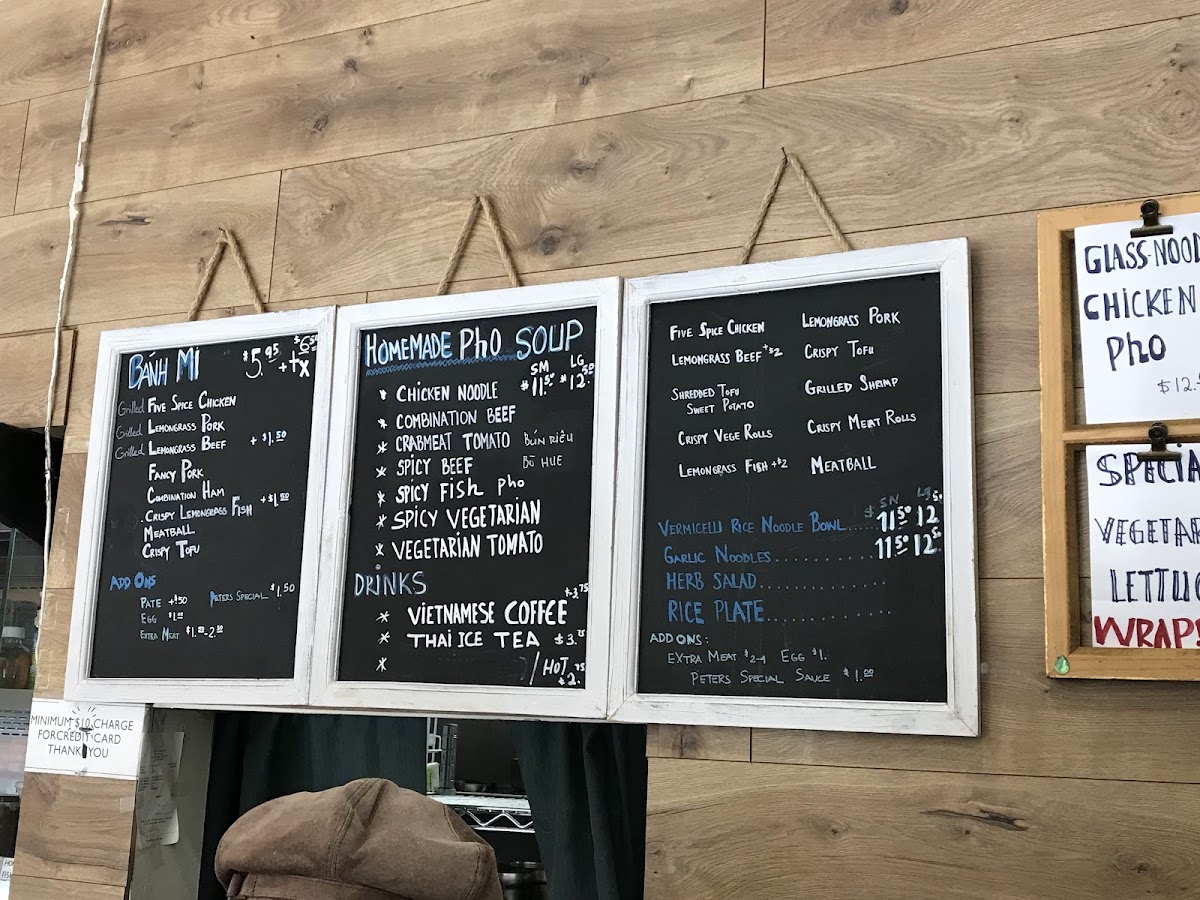 BÁNH MÌ $5.95 $6.50 +tx
Grilled FIVE SPICE CHICKEN
Grilled LEMONGRASS PORK
Grilled LEMONGRASS BEEF + $1.50
FANCY PORK
COMBINATION HAM
CRISPY LEMONGRASS FISH + $1.50
MEATBALL
CRISPY TOFU
ADD ONS
PATE + $.50 PETERS SPECIAL $1.50
EGG $1.00
EXTRA MEAT
HOMEMADE PHO SOUP
SM LG
* CHICKEN NOODLE $11.50 $12.50
* COMBINATION BEEF
* CRABMEAT TOMATO BÚN RIÊU
* SPICY BEEF BÒ HUE
* SPICY FISH PHO
* SPICY VEGETARIAN
* VEGETARIAN TOMATO
DRINKS
* VIETNAMESE COFFEE $3.75
* THAI ICE TEA $3.75
* /HOT $2.75
FIVE SPICE CHICKEN LEMONGRASS PORK
LEMONGRASS BEEF +$2 CRISPY TOFU
SHREDDED TOFU
SWEET POTATO
GRILLED SHRIMP
CRISPY VEGE ROLLS CRISPY MEAT ROLLS
LEMONGRASS FISH +$2 MEATBALL
SM LG
VERMICELLI RICE NOODLE BOWL..... 11.50 12.50
GARLIC NOODLES........... 11.50 12.50
HERB SALAD.............
RICE PLATE.............
ADD ONS:
EXTRA MEAT $2-4 EGG $1.
PETERS SPECIAL SAUCE $1.00
GLASS NOOD
CHICKEN
PHO
$12.
SPECIA
VEGETAR
LETTUC
WRAPS
MINIMUM $10 CHARGE
FOR CREDIT CARD
THANK YOU